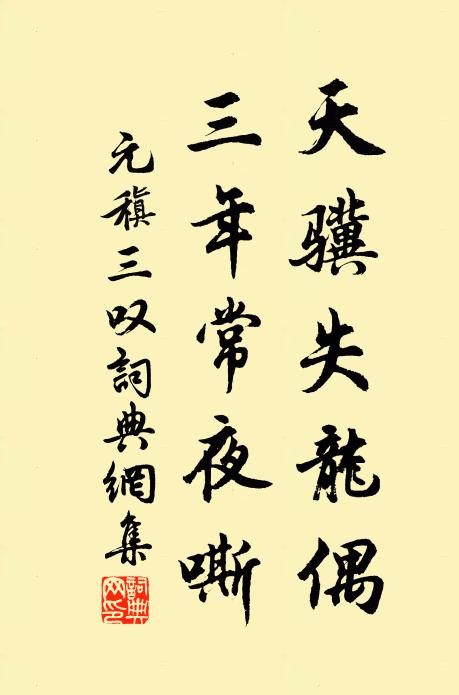 天骥失龍偶
三年常夜嘶
元稹三叹詞典網集
詞典网印